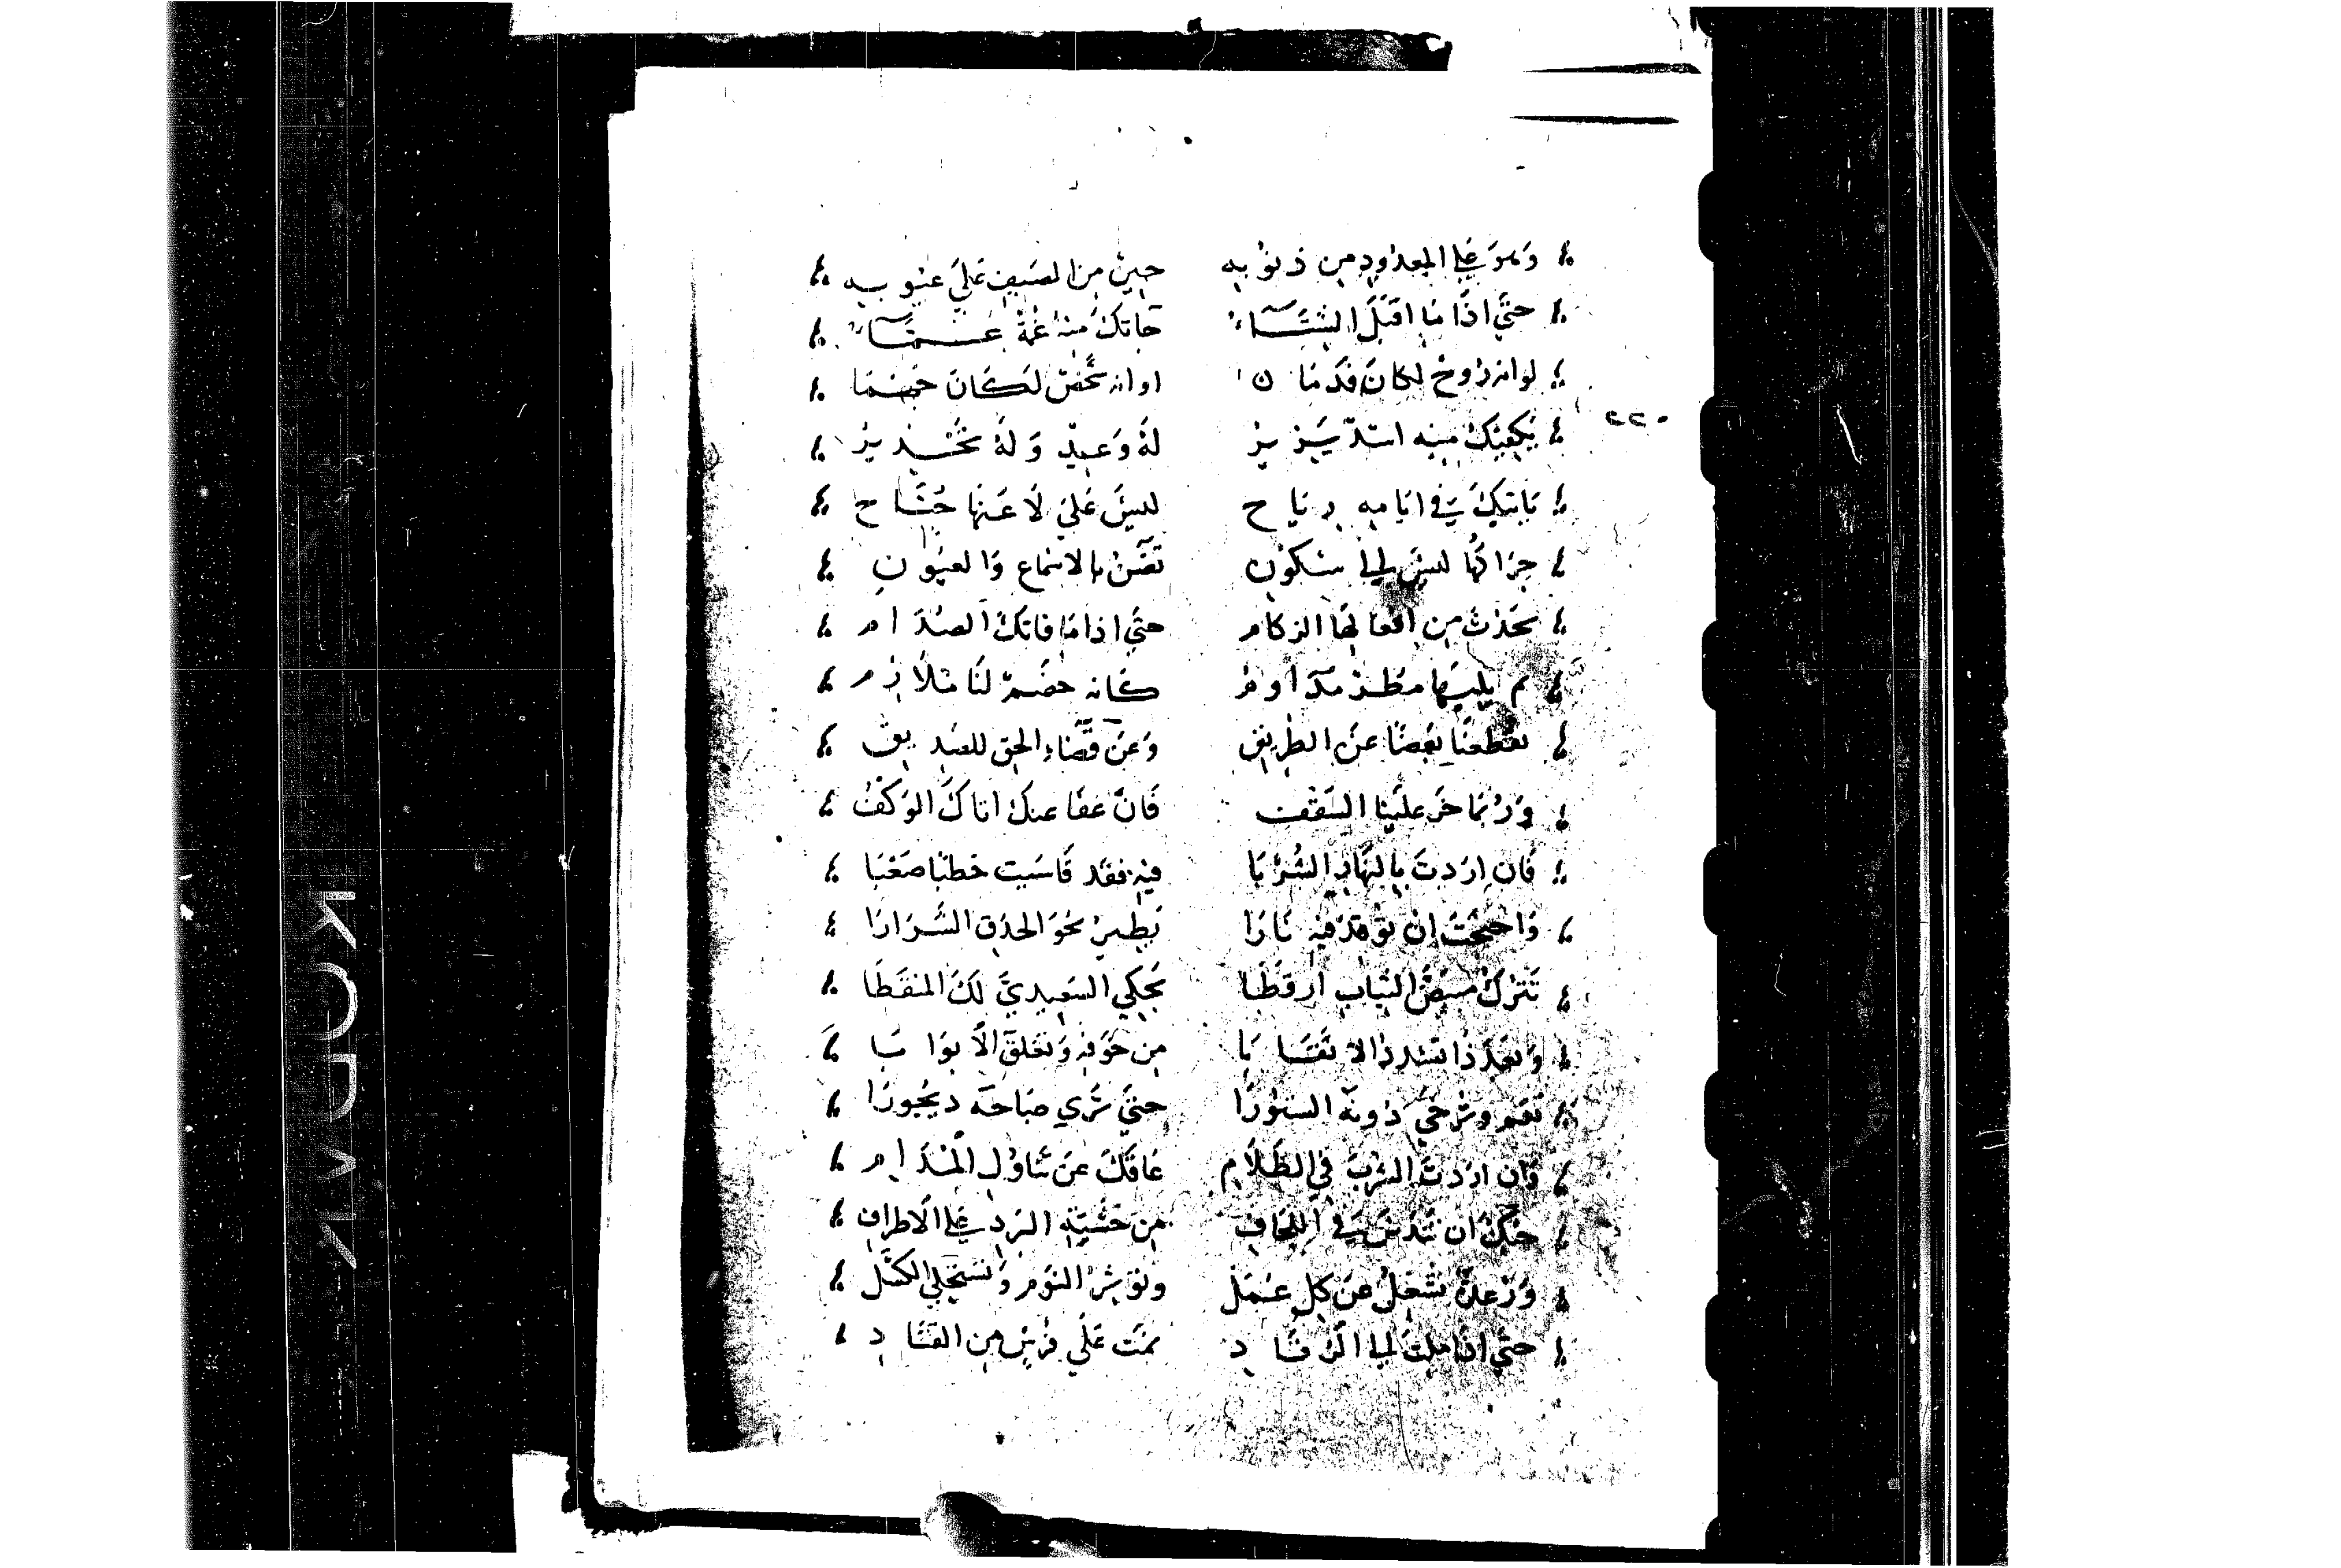 وَهوَ عَلى المعدُودِ من ذنوُبه حينٌ من الصَيفِ عَليَ عيُوبه
حتيَّ اذَا مَا اقبَلَ الشتَآء جَاتكَ منهُ غمةٌ عمَّآء
لو انه روحٌ لكانَ فدمَا ن اوانه شخصٌ لكَانَ خصمَا
يَكفيكَ منه له وَعيدٌ وَلهُ تحذيرُ
٢٢٠
يَاتيكَ في ايَامه ريَاح ليسَ عَليَ لاعنهَا جُنَاح
حرَاكُهَا ليسَ الى سكوُنِ تضَرُ بالاسماع وَالعيُونِ
يحَدُث من افعَالهَا الزكام حتيَ اذا مَا فاتكَ الصُدَام
ثم يليهَا مطرٌ مدَاومُ كَانه خصَمٌ لنَا مُلاَزم
يقُطعنَا بغضًا عنَ الطريق وَعنَ قضَاءِ الحق للصَديق
وَرُبمَا خرَ علَينا السَقفُ فَان عفَا عنكَ اتاكَ الوَكفُ
فَان ارَدتَ بالنهَارِ الشُربَا فيهِ فقد قَاسَيت خطبًا صَعبَا
وَاحتجتَ ان توقدَ فيهِ نَارَا يَطيرُ نحوَ الحدَق الشَرارَا
تَتركُ مبيضَّ الثيَابِ ارقطَا يحَكي السَعيديَّ لكَ المنقَطَا
وَبعدَ ذَا تسُددُ الانقَابَا من خَوفهِ وَتغَلقُ الاَبوَابَا
نعَم وتُرخيَ دُونهَ الستُورَا حتيَ تَري صبَاحَه ديجُورَا
وَان ارَدتَ الشربَ في الظَلاَم عَاقَكَ عَن تنَاوُلِ المُدَام
حَسبكَ ان تندَسَ في اللحَاف من خَشيَةِ البَردِ عَلى الاطرافِ
وَرعدَةٌ تشُغلُ عَن كل عَمَل وتوثرُ النوَم وَتستحليَ الكَسَل
حتيَّ اذَا ملتَ الى الرقَاد نمتَ عَلي فرُشٍ من القتَاد
KODAK